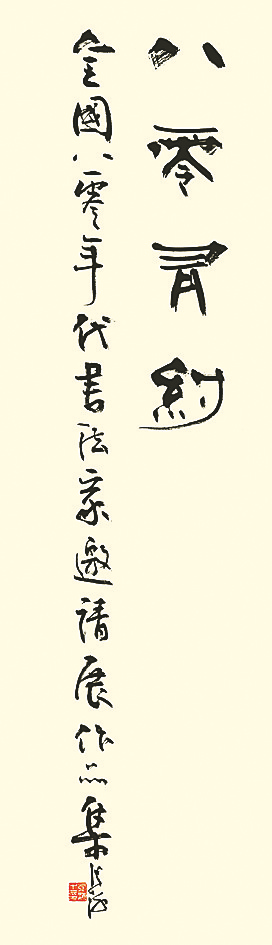 八零有約
全國八零年代書法家邀請展作品集